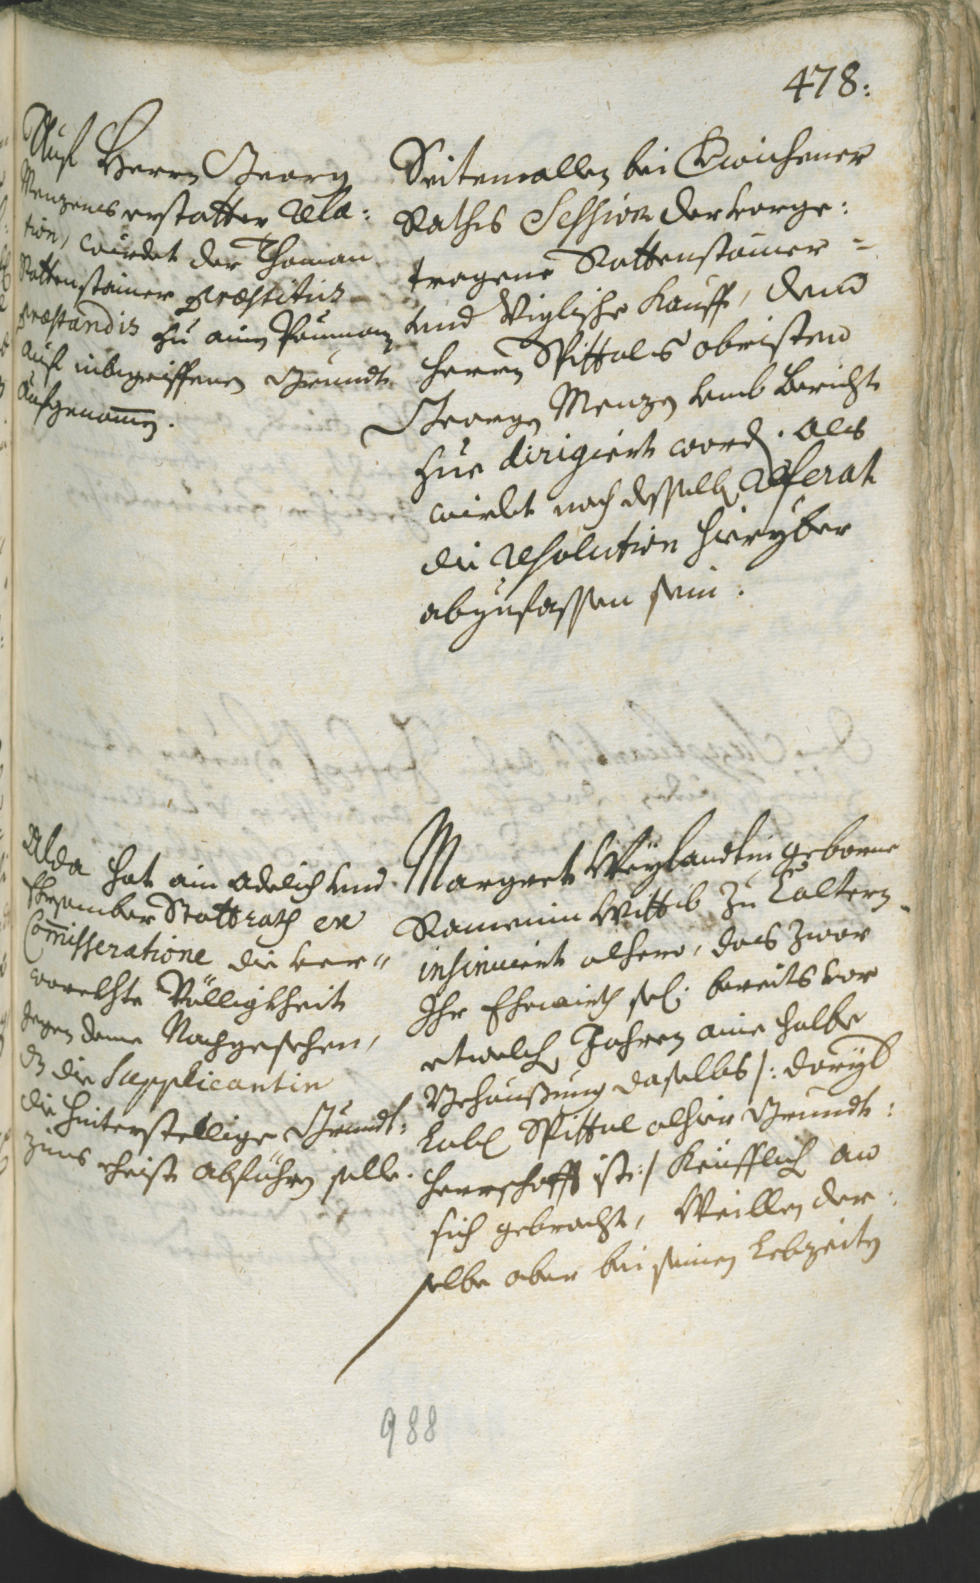 478:
Auf Herrn Georg
Menzens erstatte Rela:
tion, wirdet der Thoman
Rottenstainer præstitis
præstandis zu ain Pauman
auf inbegriffenen Grundt
aufgenomen.
Seitemallen bei gewichener
Raths Session der vorge:
tragene Rottenstainer=
und Viglische Kauff, dem
Herrn Spittals obristen
Georgen Menzen umb Bericht
zue dirigiert word. Als
wirdet nach desselb Referat
die Resolution hieryber
abzufassen sein.
Alda hat ain Adelich und
Ehrsamber Stattrath ex
Commisseratione die ver"
Völligkheit
gegen deme Nachgesehen,
dz die Supplicantin
die hinterstellige Grundt:
zins ehist abführen solle.
Margret Weylandtin geborne
Wittib zu Caltern
insinuiert alhero, das zwar
Ihr Ehewirth sel: bereits vor
etwelch Jahren aine halbe
Behaußung daselbs /: daryb
Lobl Spittal alhier Grundt:
herrschafft ist :/ Keufflich an
sich gebracht, Weillen der:
selbe aber bei seinen Lebzeiten
988